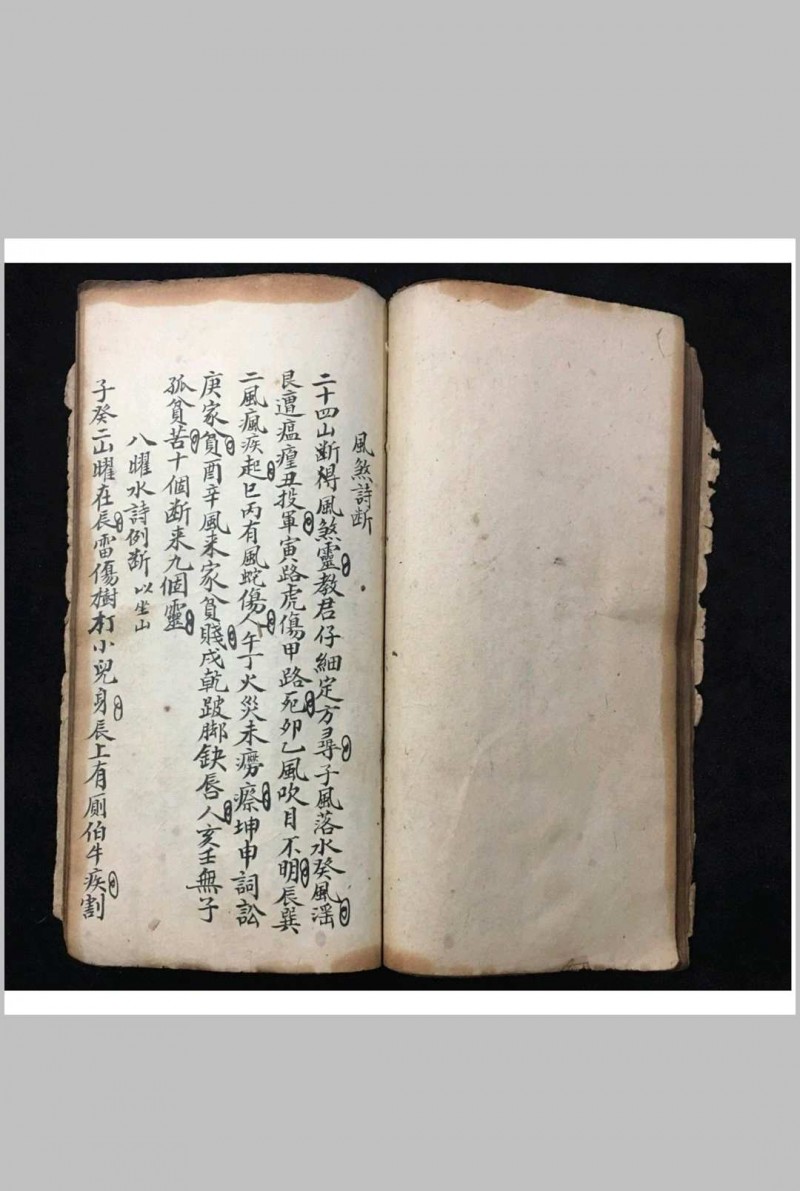 風煞詩断
二十四山断得風煞靈教君仔細定方尋子風落水癸風滛
艮遭瘟𤶊丑投軍寅路虎傷甲路死卯乙風吹目不明辰巽
二風瘋疾起巳丙有風蛇傷人午丁火災未癆瘵坤申詞訟
庚家貧酉辛風来家貧賤戌乾跛脚缺唇人亥壬無子
孤貧苦十個断来九個靈
八曜水詩例断 以坐山
子癸二山曜在辰雷傷樹打小兒身辰上有厠伯牛疾割